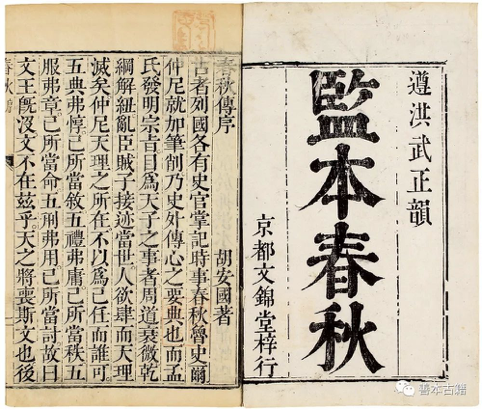 遵洪武正韻
監本春秋
京都文錦堂梓行
春秋傳序
胡安國著
古者列國各有史官掌記時事春秋魯史爾
仲尼就加筆削乃史外傳心之要典也而孟
氏發明宗旨目爲天子之事者周道衰微乾
綱解紐亂臣賊子接迹當世人欲肆而天理
滅矣仲尼天理之所在不以爲己任而誰可
五典弗惇己所當敘五禮弗庸己所當秩五
服弗章己所當命五刑弗用己所當討故曰
文王旣沒文不在兹乎天之將喪斯文也後
春秋
善本古籍